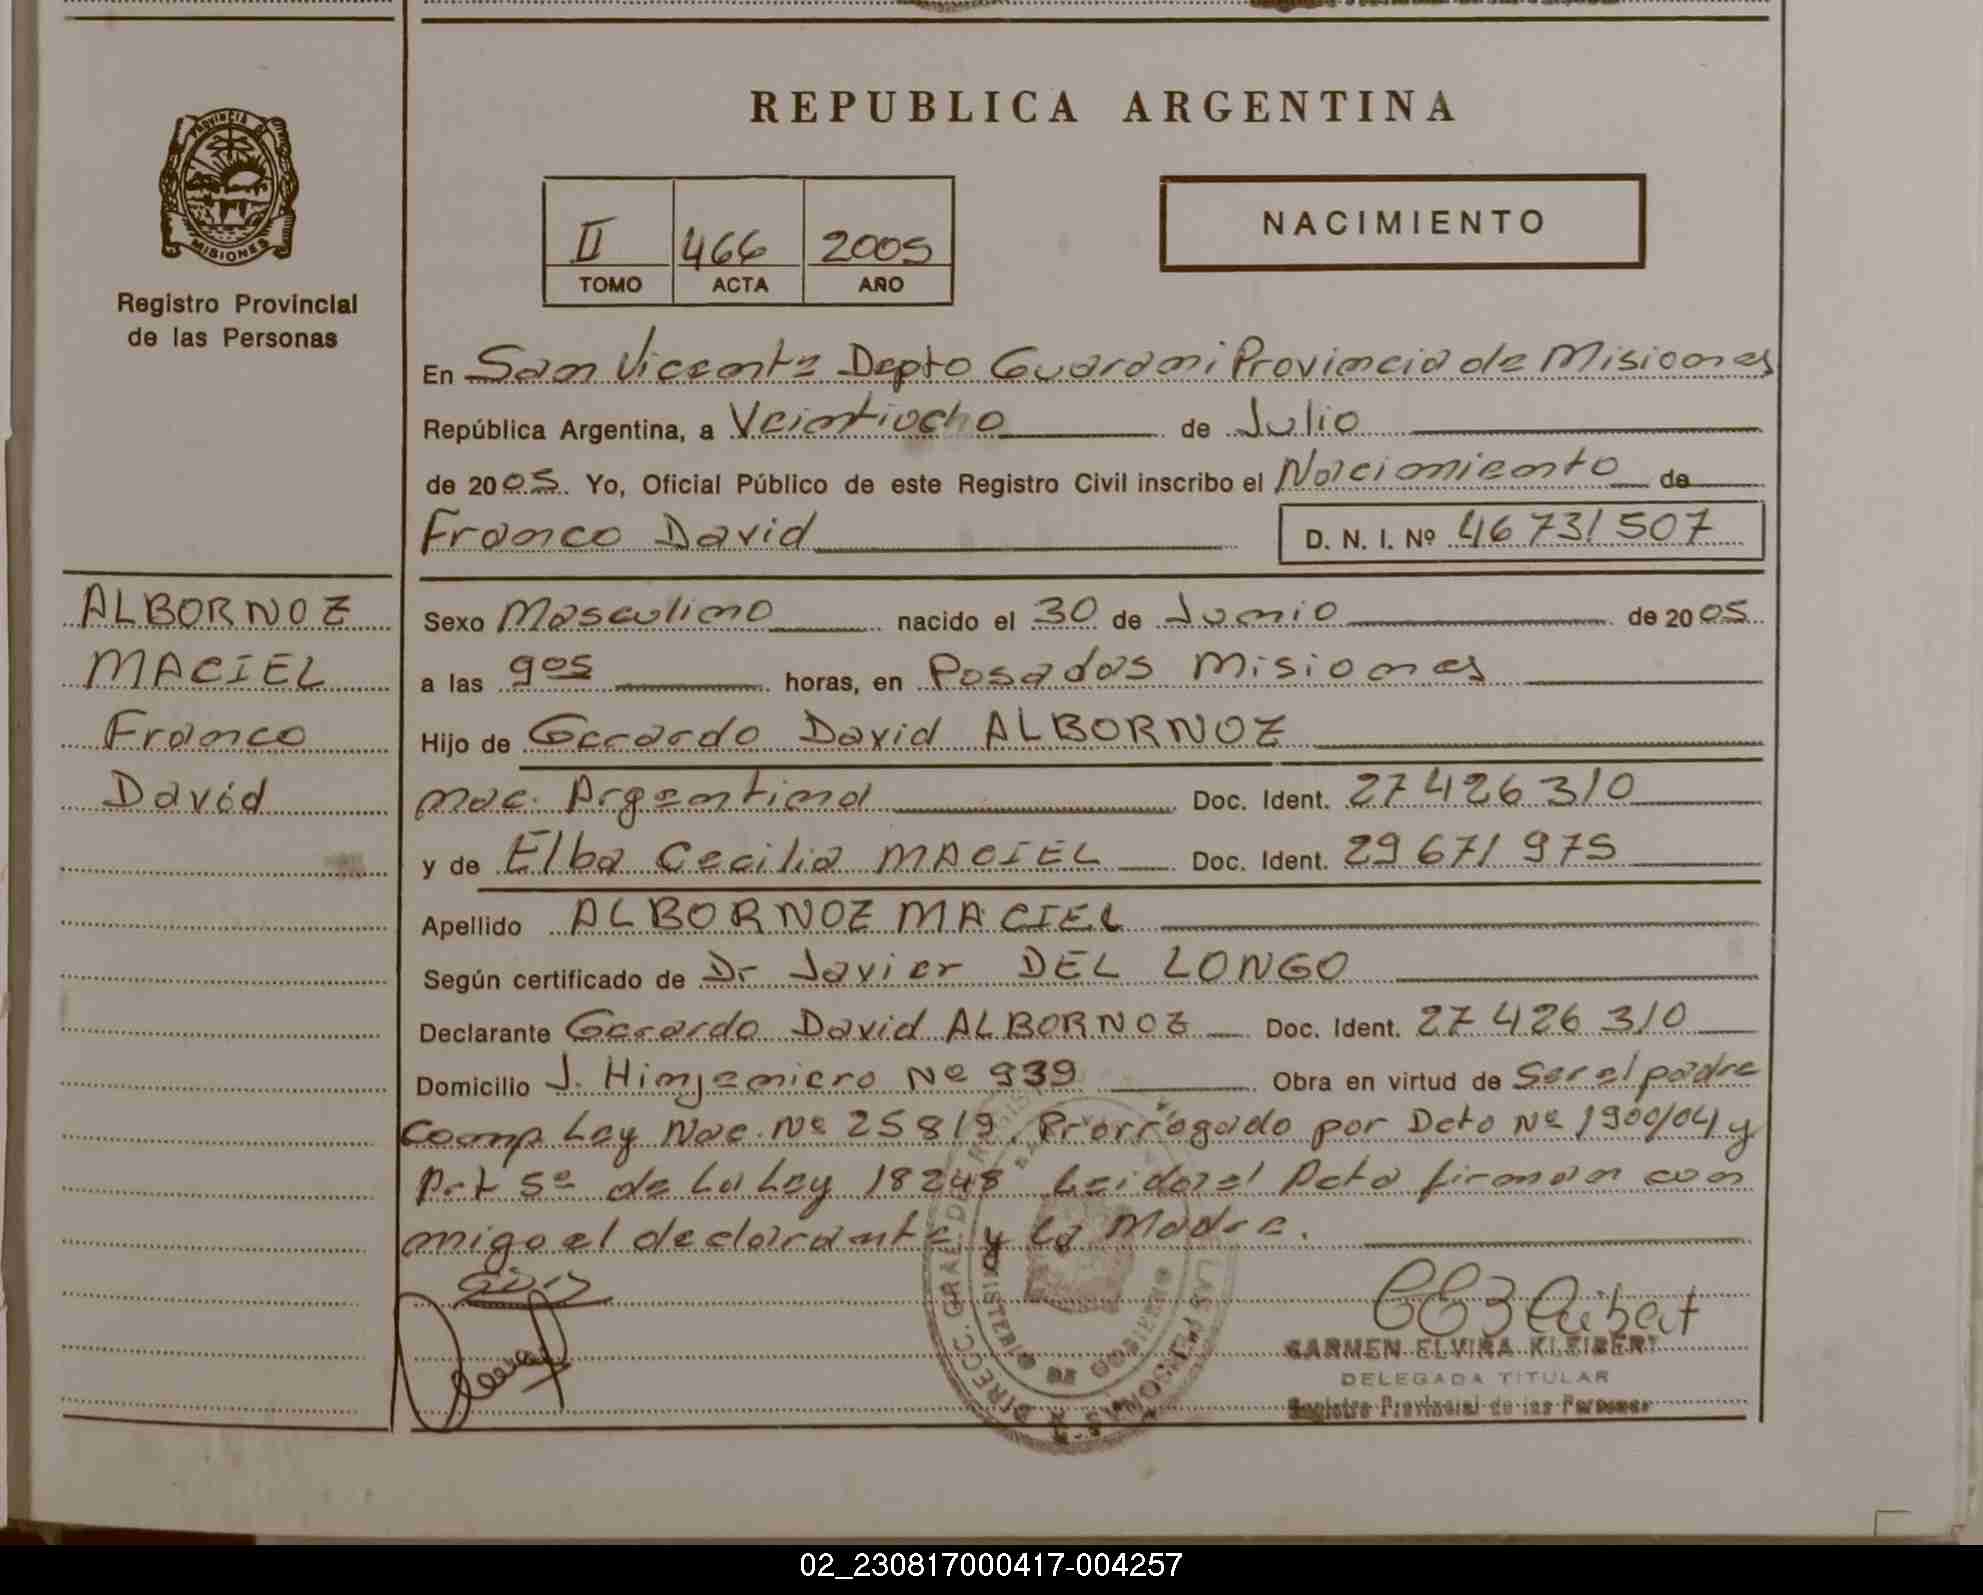 REPUBLICA ARGENTINA
PROVINCIA DE
MISIONES
Registro Provincial
de las Personas
II 466 2005
TOMO ACTA AÑO
NACIMIENTO
En San Vicente Depto Guarani Provincia de Misiones
República Argentina, a Veintiocho de Julio
de 2005. Yo, Oficial Público de este Registro Civil inscribo el Nacimiento de
Franco David D. N. I. Nº 46 731 507
ALBORNOZ
MACIEL
Franco
David
Sexo Masculino nacido el 30 de Junio de 2005
a las 9 05 horas, en Posadas Misiones
Hijo de Gerardo David ALBORNOZ
nac. Argentina Doc. Ident. 27 426 310
y de Elba Cecilia MACIEL Doc. Ident. 29 671 975
Apellido ALBORNOZ MACIEL
Según certificado de Dr Javier DEL LONGO
Declarante Gerardo David ALBORNOZ Doc. Ident. 27 426 310
Domicilio J. Himjemiero Nº 939 Obra en virtud de Ser el padre
Comp Ley Nac. Nº 25819. Prorrogado por Dcto Nº 1900/04 y
Art 5º de La Ley 18248 Leida el Acta firman con
migo el declarante y La Madre.
DIRECC. GRAL. DE
LAS PERSONAS
MINISTERIO DE GOBIERNO
CARMEN ELVIRA KLEIBERT
DELEGADA TITULAR
Registro Provincial de las Personas
02_230817000417-004257